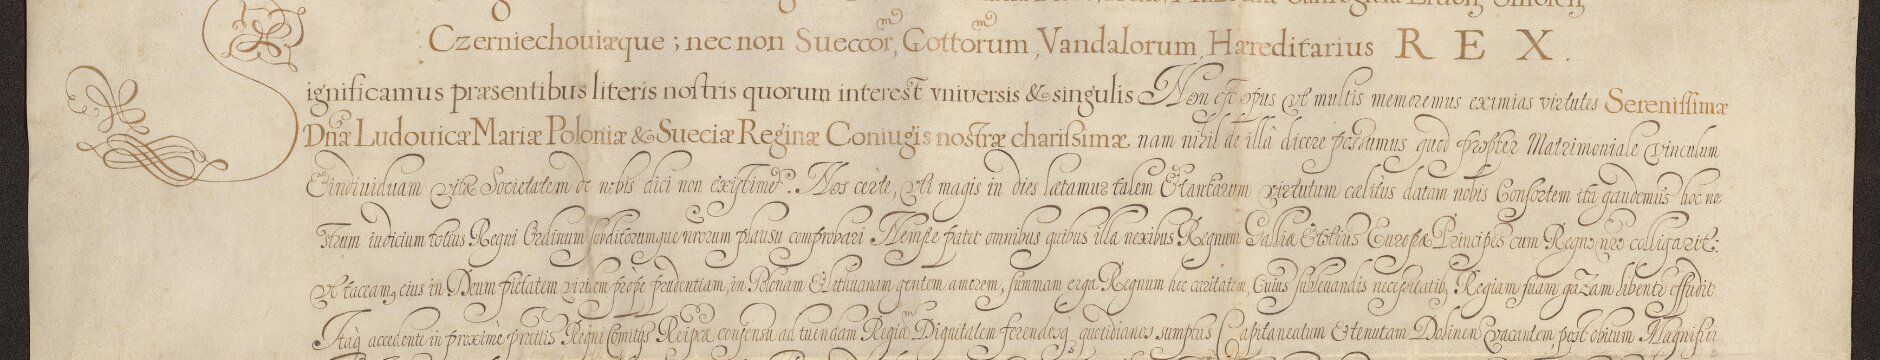 Czerniechouiæque ; nec non Sueccor, Gottorum, Vandalorum Hæreditarius REX.
Significamus præsentibus literis nostris quorum interest vniversis & singulis Non est opus vt multis memoremus eximias virtutes Serenissimæ
Dnæ Ludouicæ Mariæ Poloniæ & Sueciæ Reginæ Coniugis nostræ charissimæ. nam nihil de illa dicere possumus quod propter Matrimoniale vinculum
Et individuam vitæ Societatem de nobis dici non existimet. Nos certe, vti magis in dies lætamur talem Et tantarum virtutum cælitus datam nobis Consortem ita gaudemus hoc no
strum iudicium totius Regni Ordinum subditorumque nrorum plausu comprobari Nempe patet omnibus quibus illa nexibus Regnum Galiæ Et totius Europæ Principes cum Regno nro colligarit:
Vt taceam, eius in Deum pietatem virilem prope prudentiam, in Polonam Et Lithuanam gentem amorem, summam erga Regnum hoc caritatem, Cuius subleuandis necessitatib, Regiam suam gazam libenter effudit
Itaq accedente in proxime præteritis Regni Comitijs Reipcæ consensu ad tuendam Regiam Dignitatem ferendosq quotidianos sumptus Capitaneatum Et tenutam Dolinen vacantem post obitum Magnifici